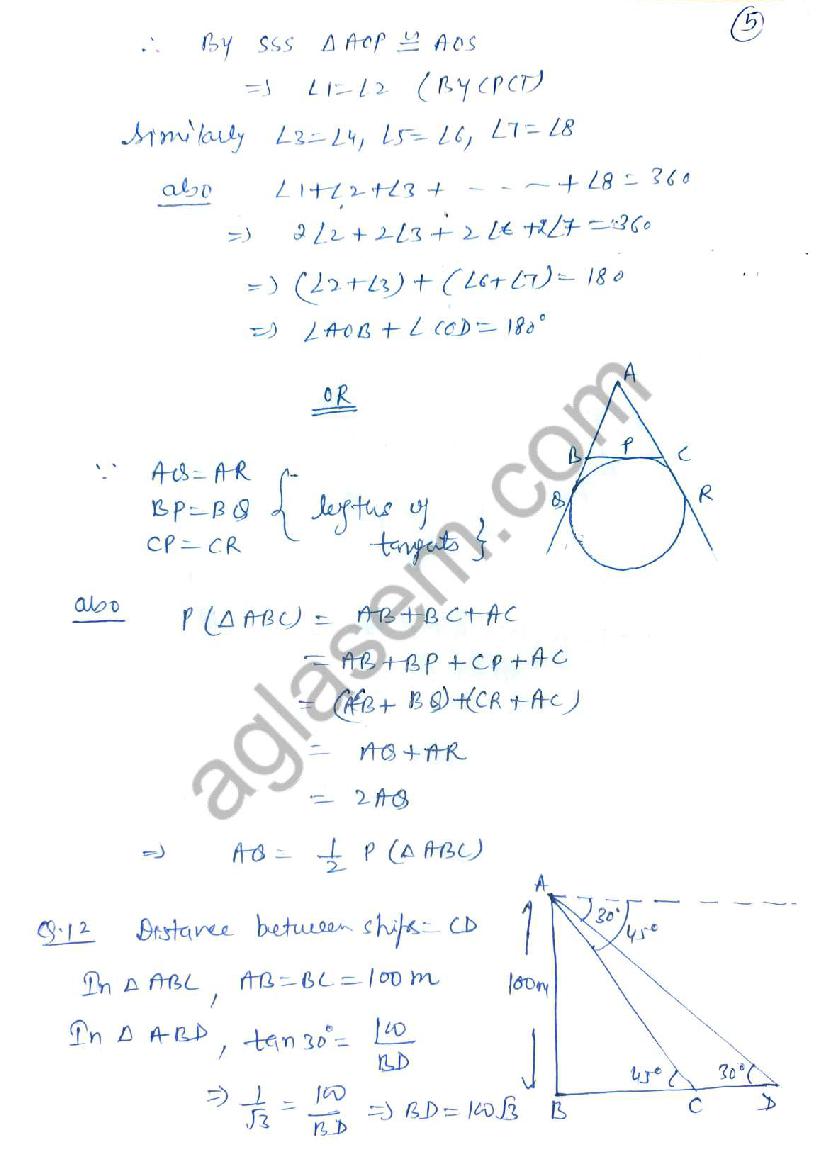 5
∴ By SSS △AOP ≅ AOS
⇒ ∠1=∠2 (By CPCT)
Similarly ∠3=∠4, ∠5=∠6, ∠7=∠8
also ∠1+∠2+∠3+ - - - - +∠8=360
⇒ 2∠2+2∠3+2∠6+2∠7=360
⇒ (∠2+∠3)+(∠6+∠7)=180
⇒ ∠AOB+∠COD=180°
OR
A
B P C
Q R
∵ AQ=AR
BP=BQ { lengths of
CP=CR tangents }
also P(△ABC) = AB+BC+AC
= AB+BP+CP+AC
= (AB+BQ)+(CR+AC)
= AQ+AR
= 2AQ
⇒ AQ = 1/2 P(△ABC)
Q.12 Distance between ships = CD
In △ABC, AB=BC=100m
In △ABD, tan30°= 100/BD
⇒ 1/√3 = 100/BD ⇒ BD=100√3
A
30° 45°
100m
45° 30°
B C D
aglasem.com